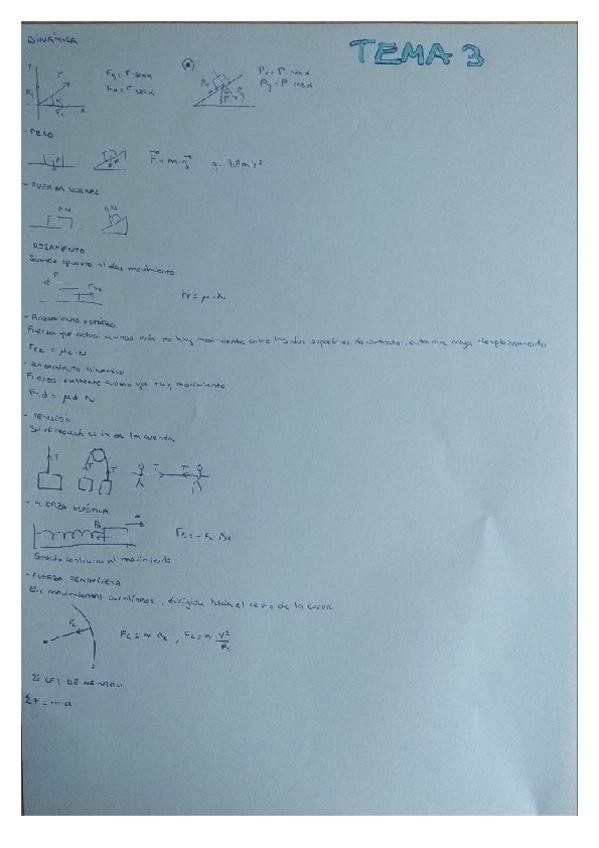 DINÁMICA
TEMA 3
Fy = F · sen α
Fx = F · cos α
Px = P · sen α
Py = P · cos α
- PESO
g = 9,8 m/s²
- FUERZA NORMAL
ROZAMIENTO
Sentido opuesto al del movimiento
Fr = μ · N
- ROZAMIENTO ESTÁTICO
Fuerza que actúa cuando no hay movimiento entre las dos superficies de contacto
- ROZAMIENTO DINÁMICO
Fuerza existente cuando ya hay movimiento
Frd = μd N
- TENSIÓN
Su dirección es la de la cuerda
T T T T T
- FUERZA ELÁSTICA
Sentido contrario al movimiento
- FUERZA CENTRÍPETA
En movimientos curvilíneos, dirigida hacia el centro de la curva
Fc
Fc = m ac , Fc = m v²/R
2ª LEY DE NEWTON
ΣF = m·a